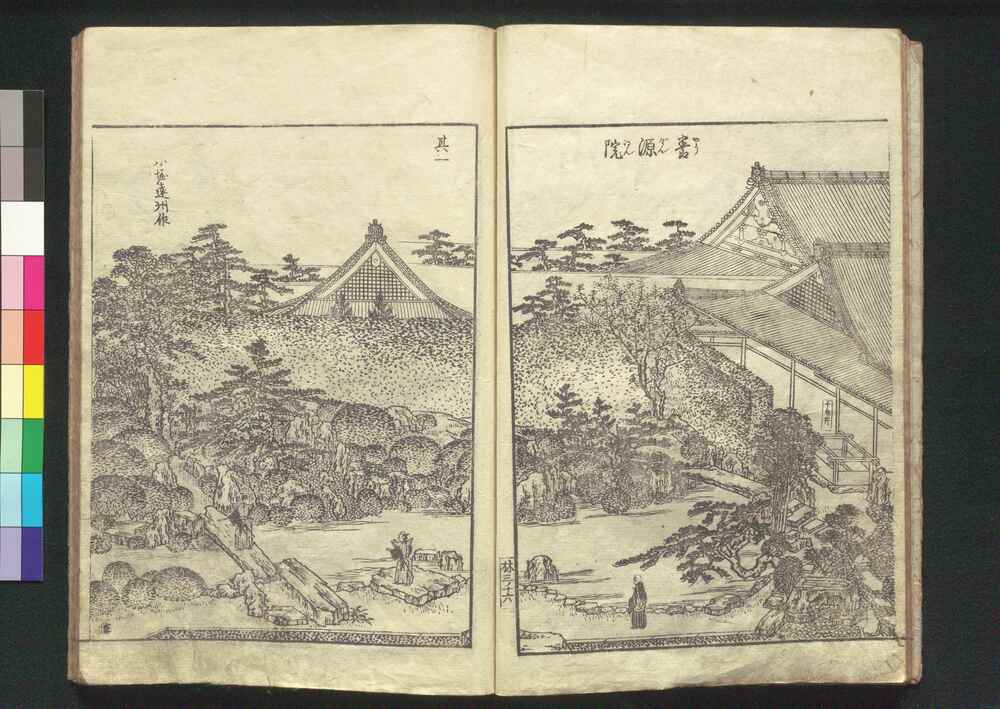 養源院
其一
小堀遠州作
林三ノ十六